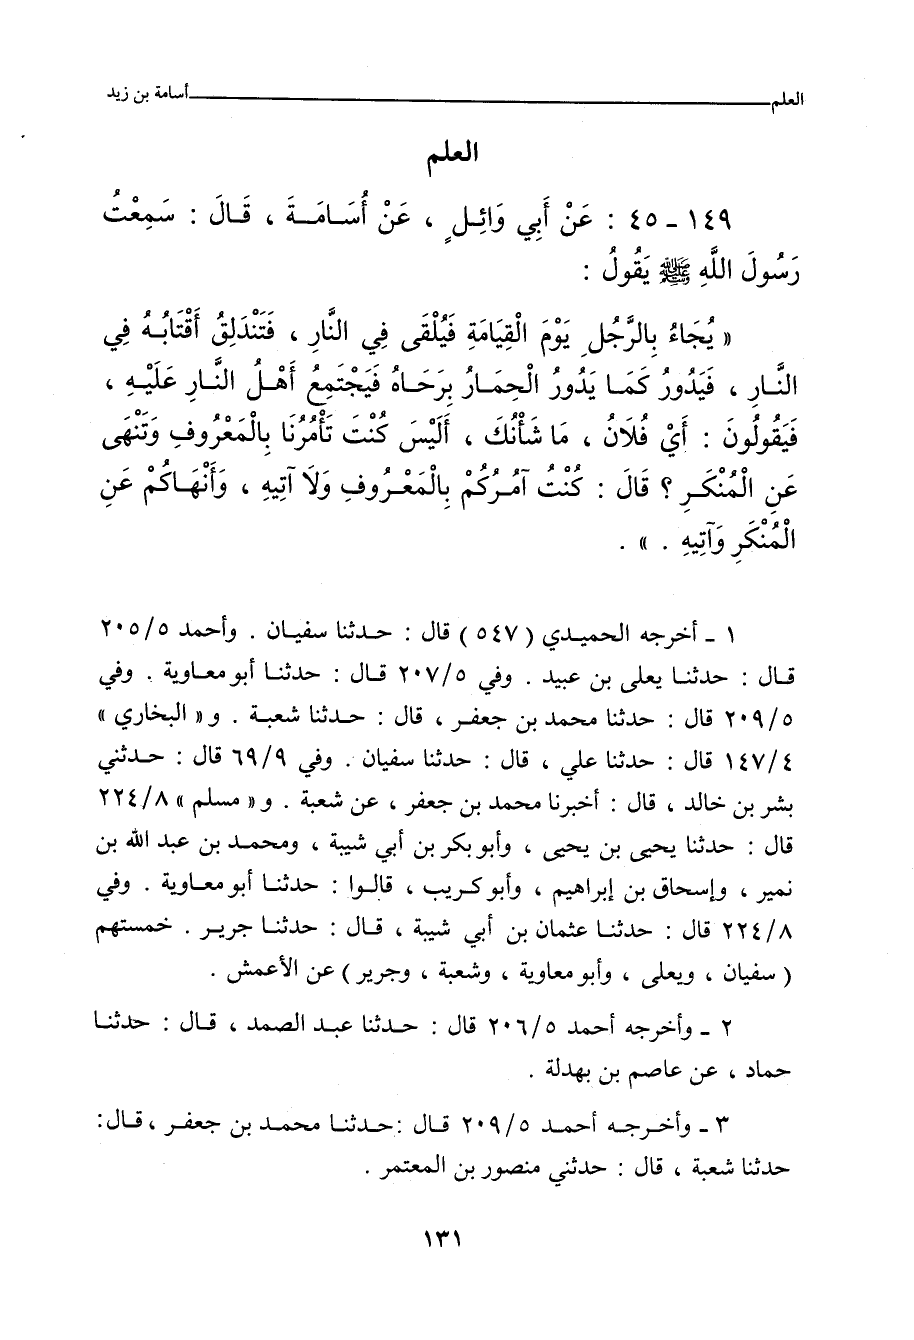 العلم ــــــــــ أسامة بن زيد
العلم
١٤٩ ـ ٤٥ : عَنْ أَبِي وَائِلٍ ، عَنْ أُسَامَةَ ، قَالَ : سَمِعْتُ
رَسُولَ اللَّهِ ﷺ يَقُولُ :
« يُجَاءُ بِالرَّجُلِ يَوْمَ الْقِيَامَةِ فَيُلْقَى فِي النَّارِ ، فَتَنْدَلِقُ أَقْتَابُهُ فِي
النَّارِ ، فَيَدُورُ كَمَا يَدُورُ الْحِمَارُ بِرَحَاهُ فَيَجْتَمِعُ أَهْلُ النَّارِ عَلَيْهِ ،
فَيَقُولُونَ : أَيْ فُلَانُ ، مَا شَأْنُكَ ، أَلَيْسَ كُنْتَ تَأْمُرُنَا بِالْمَعْرُوفِ وَتَنْهَى
عَنِ الْمُنْكَرِ ؟ قَالَ : كُنْتُ آمُرُكُمْ بِالْمَعْرُوفِ وَلَا آتِيهِ ، وَأَنْهَاكُمْ عَنِ
الْمُنْكَرِ وَآتِيهِ . » .
١ ـ أخرجه الحميدي ( ٥٤٧ ) قال : حدثنا سفيان . وأحمد ٢٠٥/٥
قال : حدثنا يعلى بن عبيد . وفي ٢٠٧/٥ قال : حدثنا أبو معاوية . وفي
٢٠٩/٥ قال : حدثنا محمد بن جعفر ، قال : حدثنا شعبة . و« البخاري »
١٤٧/٤ قال : حدثنا علي ، قال : حدثنا سفيان . وفي ٦٩/٩ قال : حدثني
بشر بن خالد ، قال : أخبرنا محمد بن جعفر ، عن شعبة . و« مسلم » ٢٢٤/٨
قال : حدثنا يحيى بن يحيى ، وأبو بكر بن أبي شيبة ، ومحمد بن عبد الله بن
نمير ، وإسحاق بن إبراهيم ، وأبو كريب ، قالوا : حدثنا أبو معاوية . وفي
٢٢٤/٨ قال : حدثنا عثمان بن أبي شيبة ، قال : حدثنا جرير . خمستهم
( سفيان ، ويعلى ، وأبو معاوية ، وشعبة ، وجرير ) عن الأعمش .
٢ ـ وأخرجه أحمد ٢٠٦/٥ قال : حدثنا عبد الصمد ، قال : حدثنا
حماد ، عن عاصم بن بهدلة .
٣ ـ وأخرجه أحمد ٢٠٩/٥ قال : حدثنا محمد بن جعفر ، قال :
حدثنا شعبة ، قال : حدثني منصور بن المعتمر .
١٣١